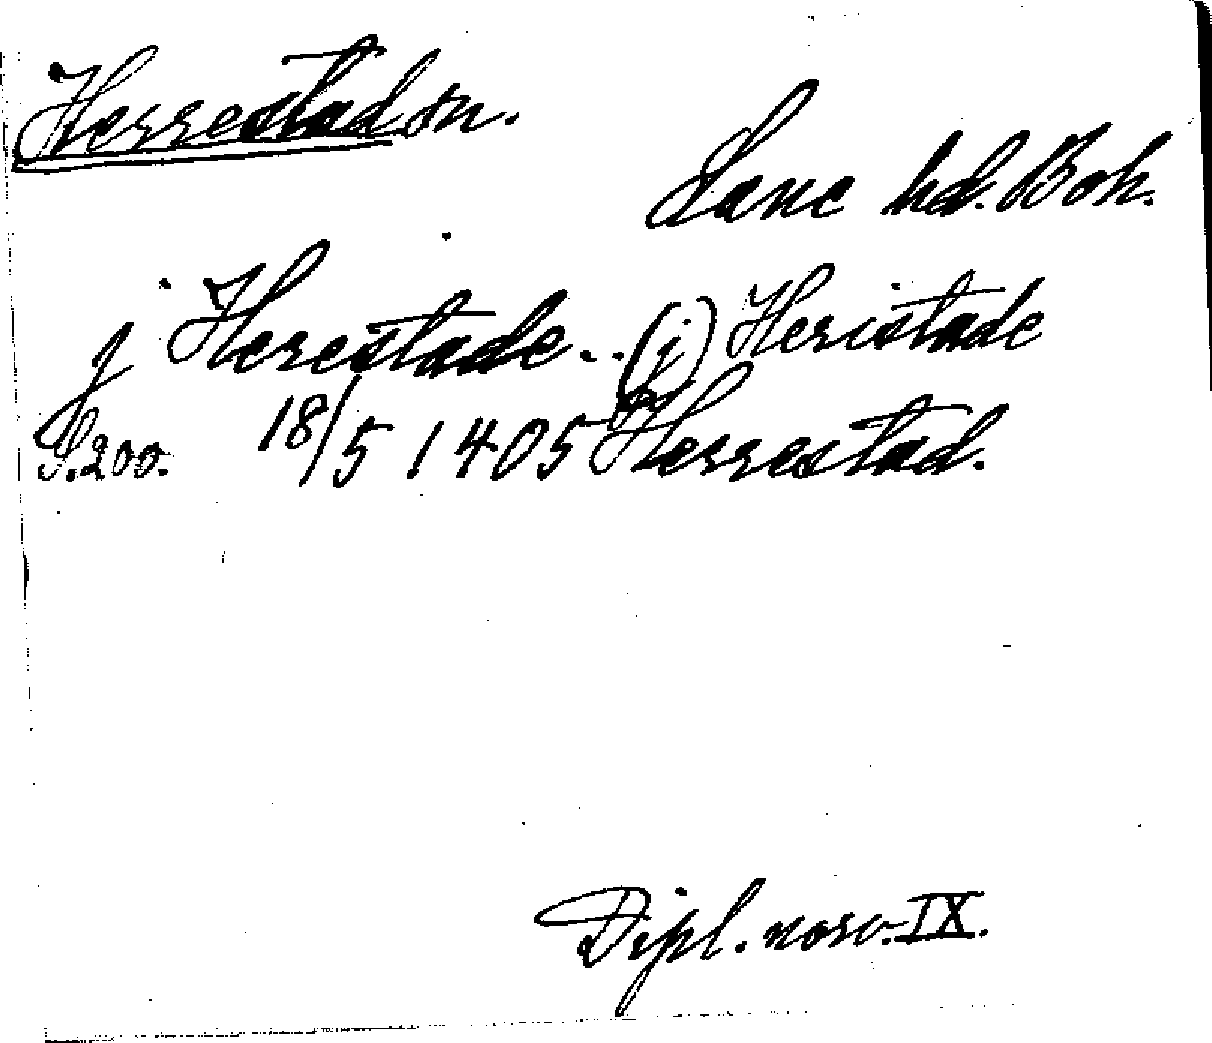 Herrestad sn.
Lane hd. Boh.
j Herestade... (j) Heristade
S. 200. 18/5 1405 Herrestad.
Dipl. norv. IX.